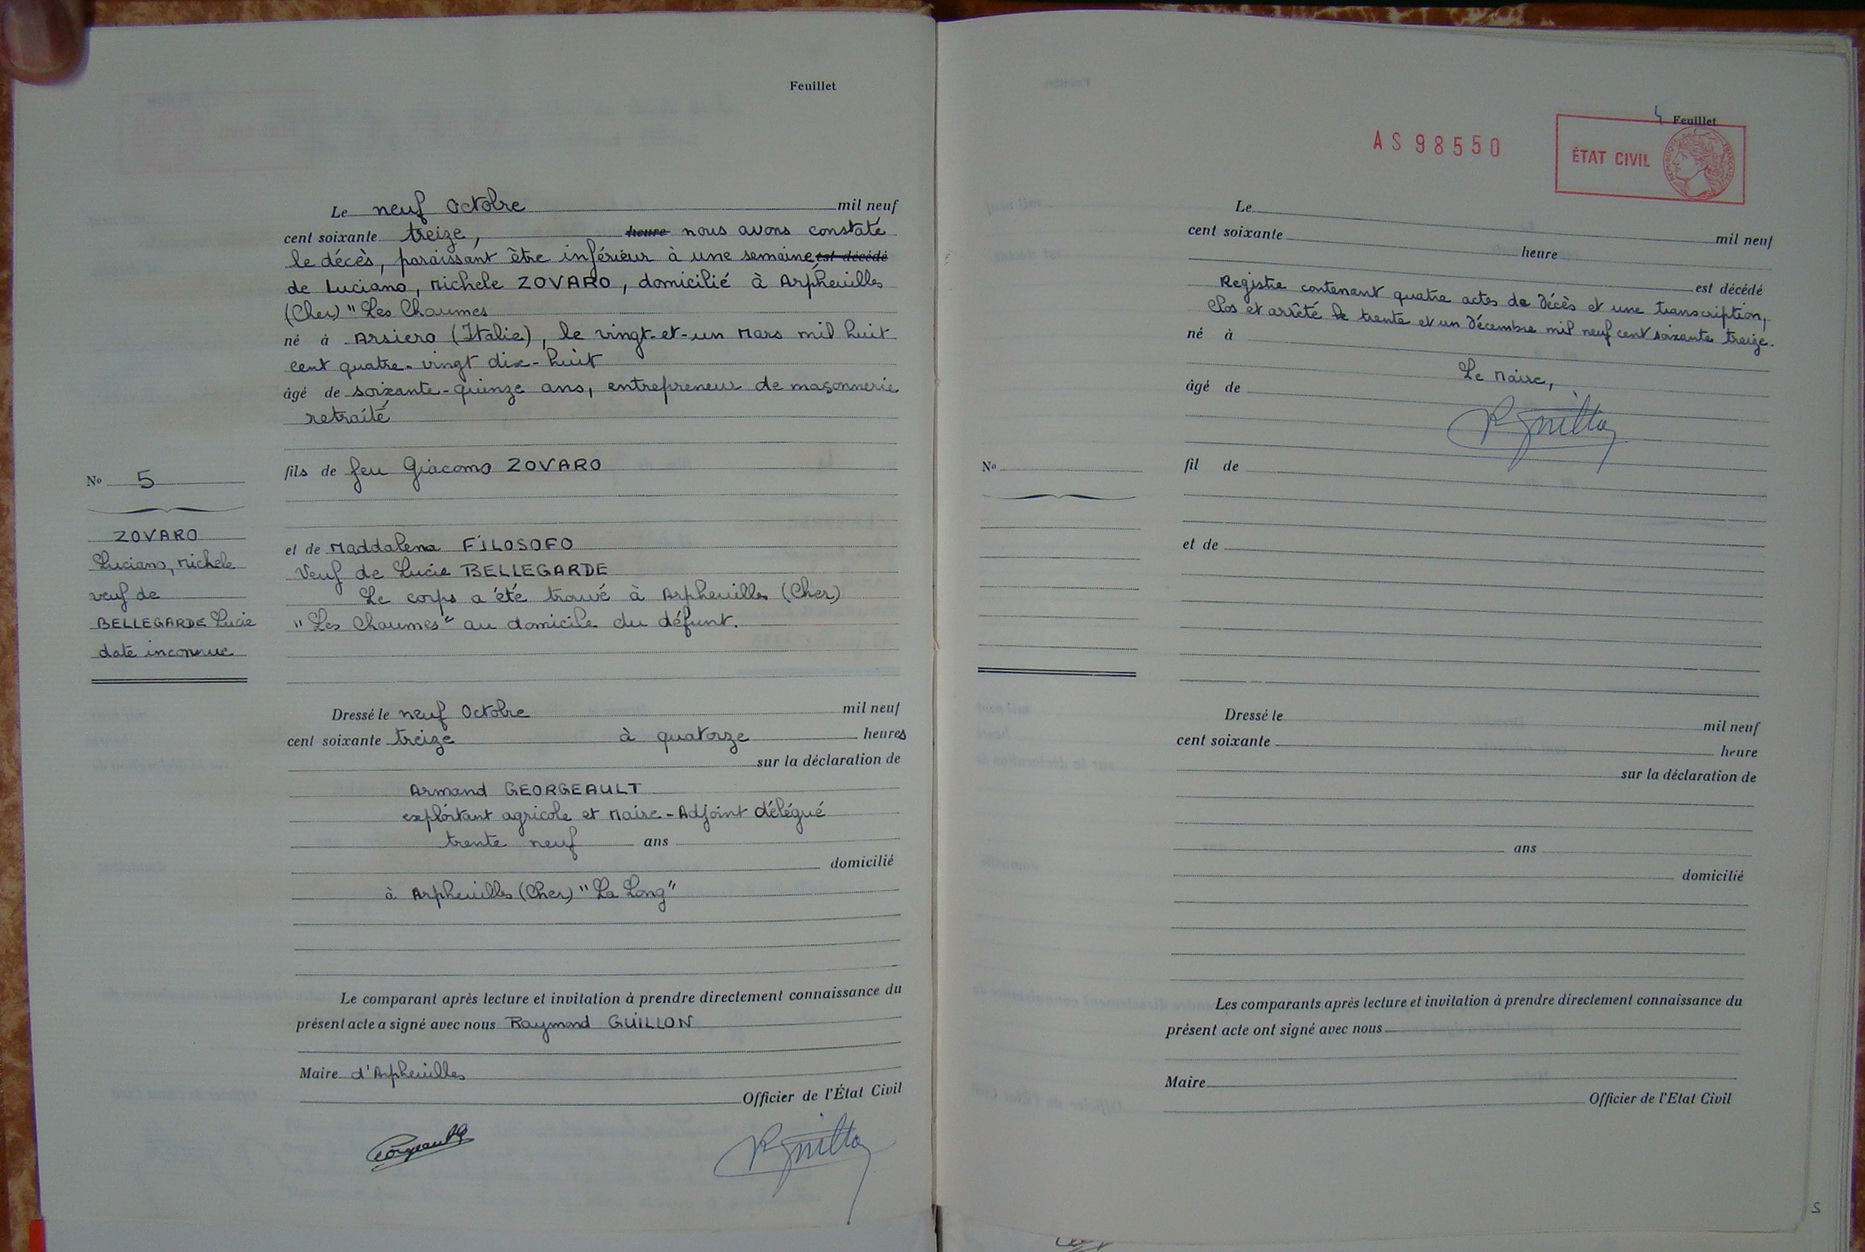 Feuillet
Le neuf Octobre mil neuf
cent soixante treize, heure nous avons constaté
le décès, paraissant être inférieur à une semaine est décédé
de Luciano, Michele ZOVARO, domicilié à Arpheuilles
(Cher) "Les Chaumes
né à Arsiero (Italie), le vingt-et-un Mars mil huit
cent quatre-vingt dix-huit
âgé de soixante-quinze ans, entrepreneur de maçonnerie
retraité
fils de feu Giacomo ZOVARO
et de Maddalena FILOSOFO
Veuf de Lucie BELLEGARDE
Le corps a été trouvé à Arpheuilles (Cher)
"Les Chaumes" au domicile du défunt.
No 5
ZOVARO
Luciano, Michele
veuf de
BELLEGARDE Lucie
date inconnue
Dressé le neuf Octobre mil neuf
cent soixante treize à quatorze heures
sur la déclaration de
Armand GEORGEAULT
exploitant agricole et Maire-Adjoint délégué
trente neuf ans
domicilié
à Arpheuilles (Cher) "La Long"
Le comparant après lecture et invitation à prendre directement connaissance du
présent acte a signé avec nous Raymond GUILLON
Maire d'Arpheuilles
Officier de l'État Civil
Georgeault
R Guillon
4 Feuillet
AS 98550
ÉTAT CIVIL
Le mil neuf
cent soixante heure
est décédé
Registre contenant quatre actes de décès et une transcription,
Clos et arrêté le trente et un Décembre mil neuf cent soixante treize.
né à
Le Maire,
âgé de
R Guillon
No
fil de
et de
Dressé le mil neuf
cent soixante heure
sur la déclaration de
ans
domicilié
Les comparants après lecture et invitation à prendre directement connaissance du
présent acte ont signé avec nous
Maire
Officier de l'Etat Civil
5